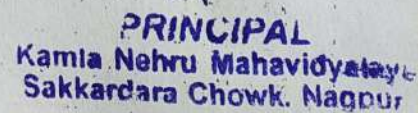 PRINCIPAL
Kamla Nehru Mahavidyalaye
Sakkardara Chowk. Nagpur